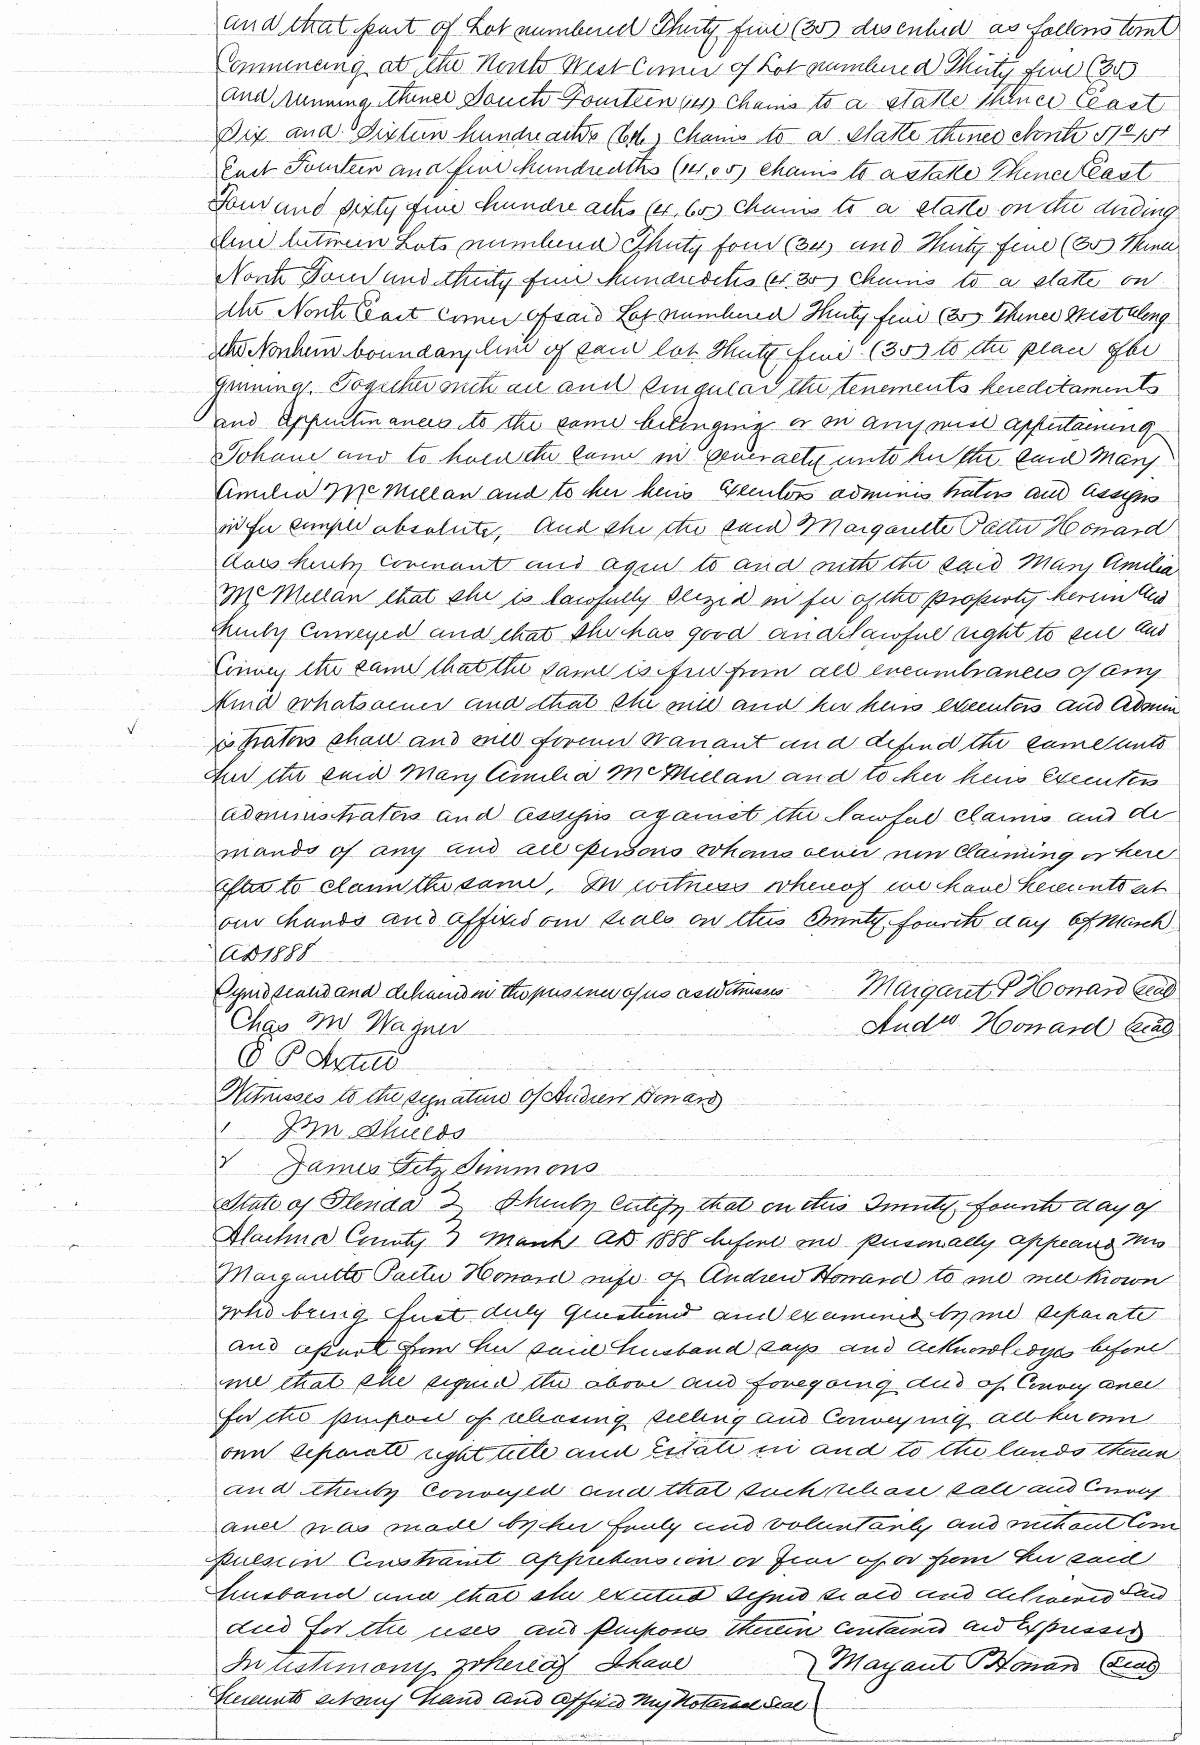 and that part of Lot numbered Thirty five (35) described as follows towit
Commencing at the North West Corner of Lot numbered Thirty five (35)
and running thence South Fourteen (14) Chains to a stake Thence East
Six and Sixteen hundreaths (6.16) Chains to a stake thence North 51°15'
East Fourteen and five hundreaths (14.05) chains to a stake Thence East
Four and Sixty five hundre aths (4.65) Chains to a stake on the dividing
line between Lots numbered Thirty four (34) and Thirty five (35) Thence
North Four and thirty five hundredths (4.35) Chains to a stake on
the North East Corner of said Lot numbered Thirty five (35) Thence West along
the Northern boundary line of said lot Thirty five (35) to the place of be
ginning. Together with all and singular the tenements hereditaments
and appurtenances to the same belonging or in any wise appertaining
To have and to hold the same in severalty unto her the said Mary
Amelia McMillan and to her heirs Executors adminis trators and assigns
in fee simple absolute, And she the said Margarette Howard
does hereby covenant and agree to and with the said Mary Amelia
McMillan that she is lawfully seized in fee of the property herein and
hereby conveyed and that she has good and lawful right to sell and
Convey the same that the same is free from all encumbrances of any
kind whatsoever and that she will and her heirs executors and Admin
istrators shall and will forever warrant and defend the same unto
her the said Mary Amelia McMillan and to her heirs Executors
administrators and assigns against the lawful claims and de
mands of any and all persons whomsoever now Claiming or here
after to claim the same, In witness whereof we have hereunto set
our hands and affixed our seals on this twenty fourth day of March
AD 1888
Signed sealed and delivered in the presence of us as Witnesses Margaret P Howard (seal)
Chas M Wagner Andw Howard (seal)
E P Axtell
Witnesses to the signature of Andrew Howard
1 Shields
2 James Fitz Simmons
State of Florida } I hereby Certify that on this Twenty fourth day of
Alachua County } March AD 1888 before me personally appeared Mrs
Margarette Howard wife of Andrew Howard to me well known
who being first duly questioned and examined by me separate
and apart from her said husband says and acknowledges before
me that she signed the above and foregoing deed of Convey ance
for the purpose of releasing selling and Conveying all her own
own separate right title and Estate in and to the lands therein
and thereby Conveyed and that such release sale and Convey
ance was made by her freely and voluntarily and without Com
pulsion Constraint apprehension or fear of or from her said
husband and that she executed signed sealed and delivered said
deed for the uses and purposes therein contained and Expressed
In testimony whereof I have } Margaret P Howard (seal)
hereunto set my hand and affixed my Notarial Seal